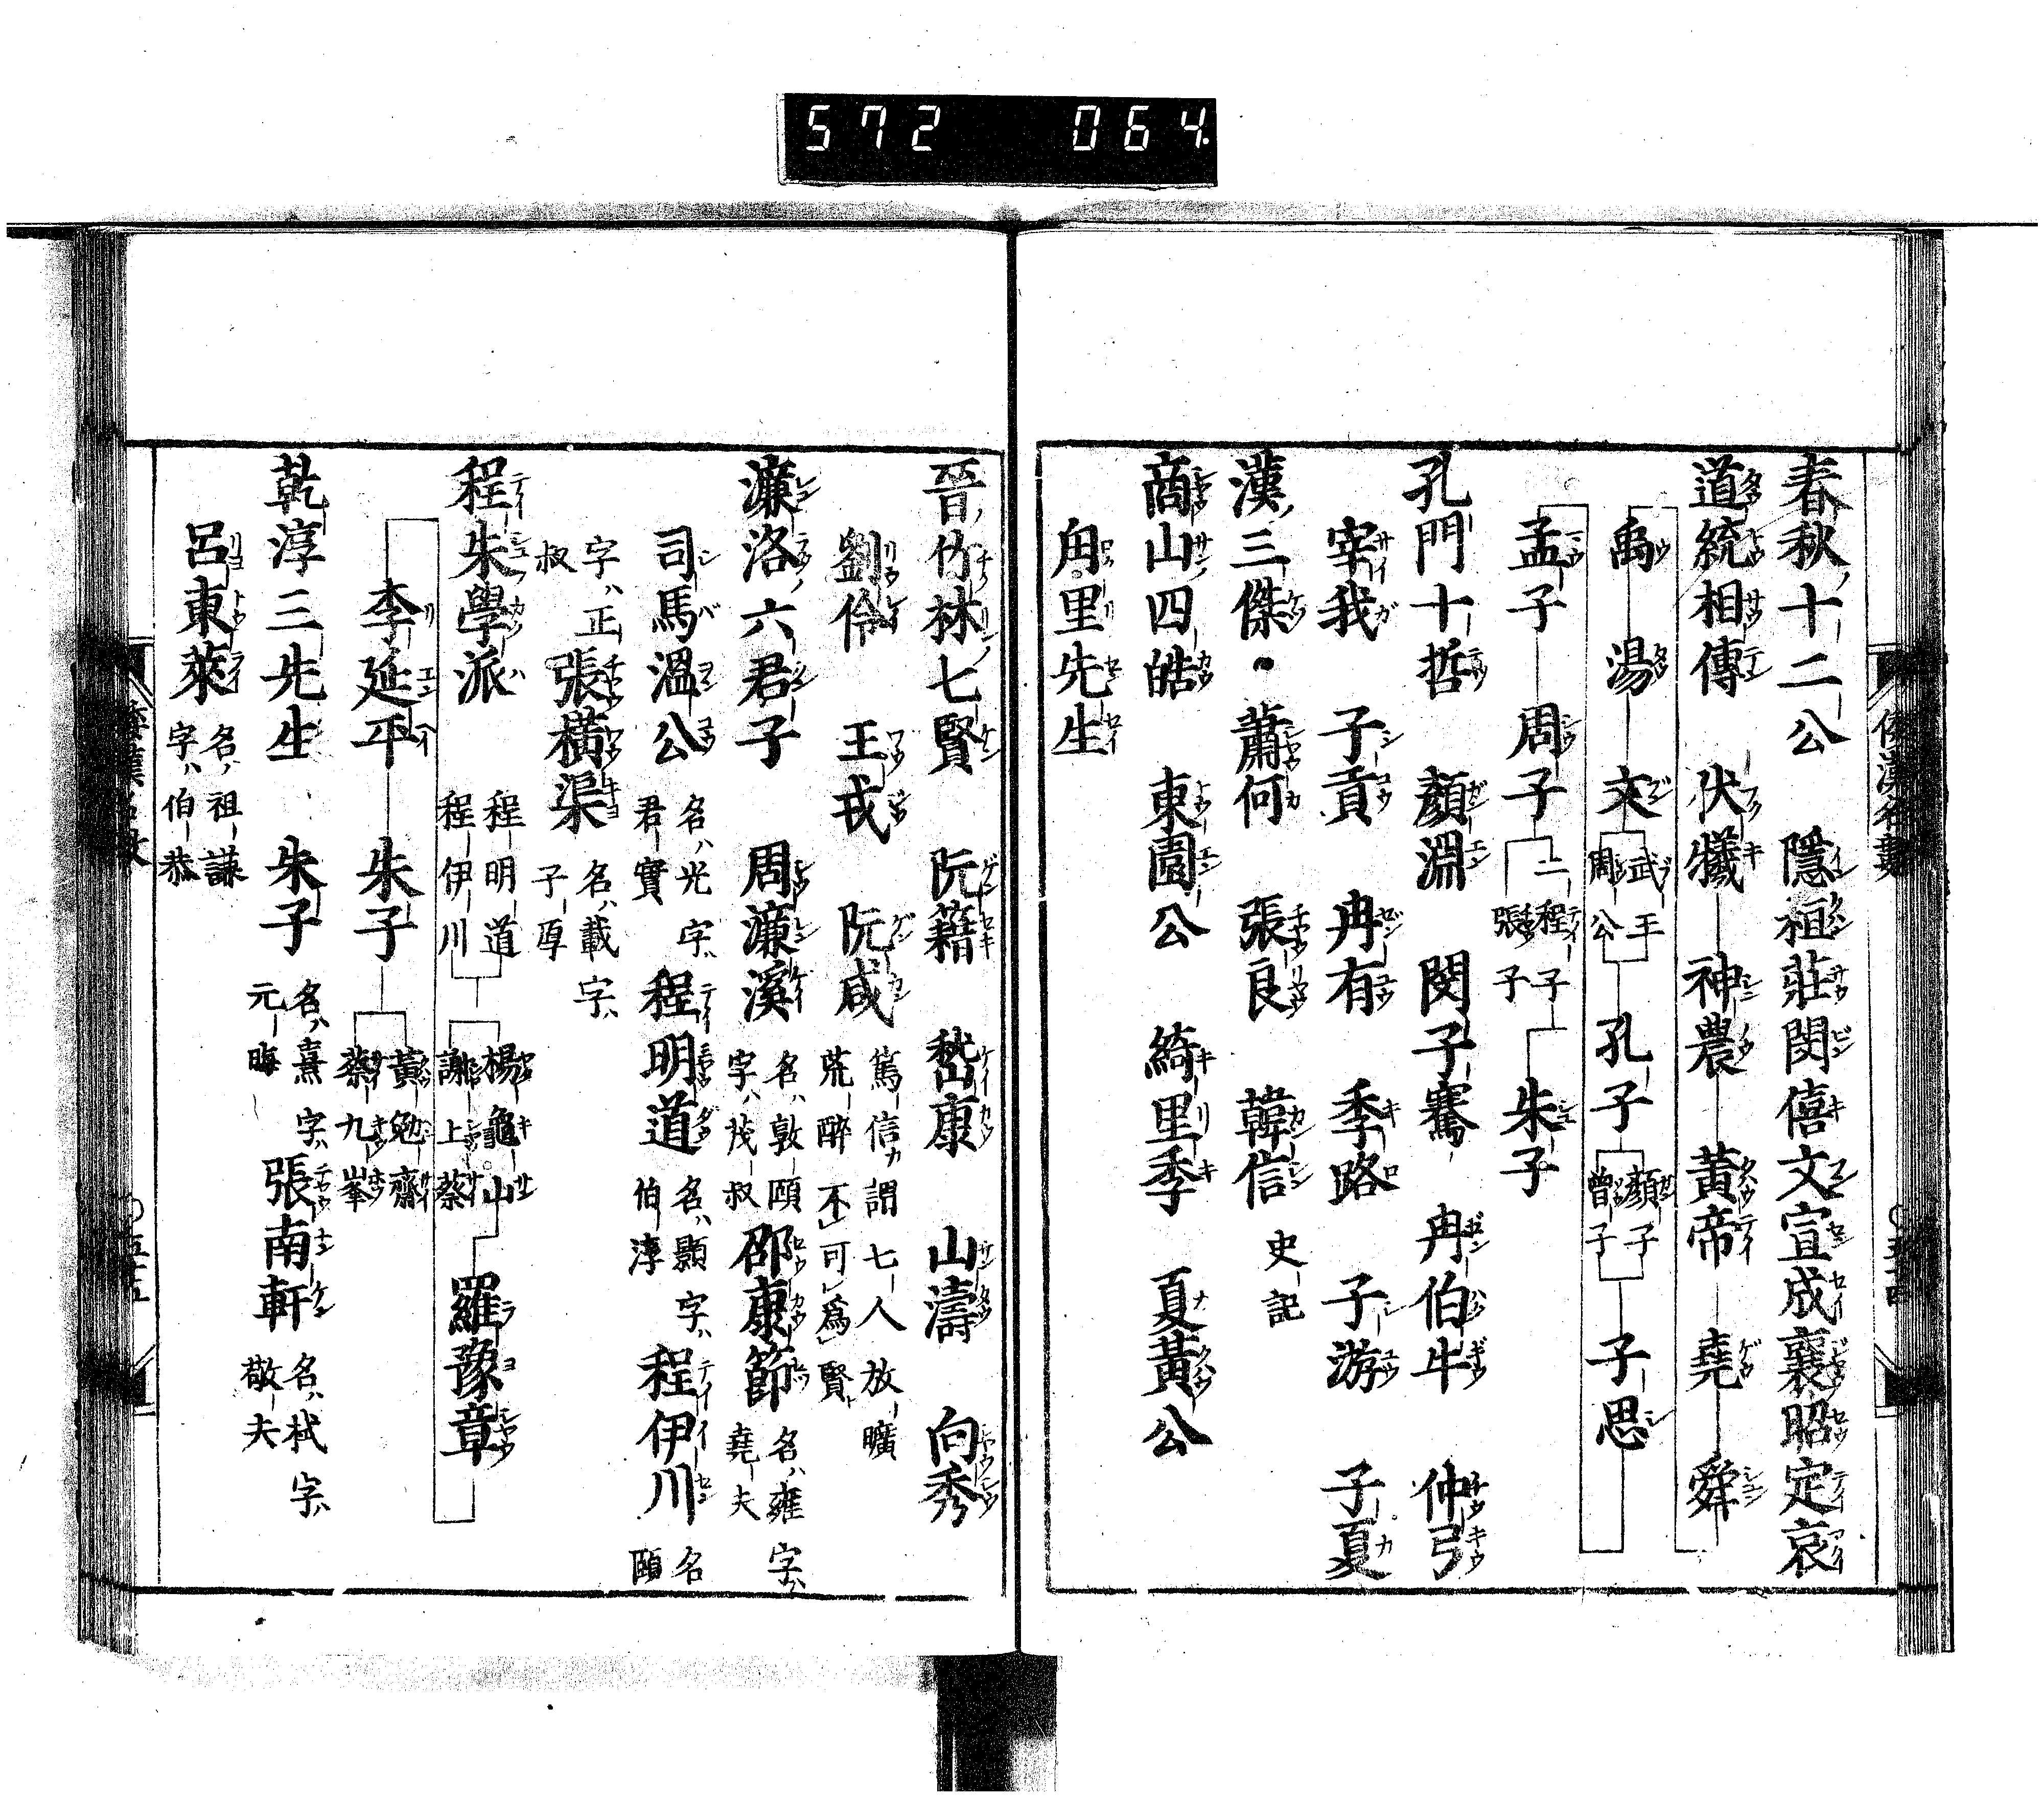 572 064.
春秋十二公 隱桓莊閔僖文宣成襄昭定哀
道統相傳 伏犧 神農 黃帝 堯 舜
禹 湯 文 武王 周公 孔子 顏子 曾子 子思
孟子 周子 二程子 張子 朱子
孔門十哲 顏淵 閔子騫 冉伯牛 仲弓
宰我 子貢 冉有 季路 子游 子夏
漢三傑 蕭何 張良 韓信 史記
商山四皓 東園公 綺里季 夏黃公
甪里先生
晉竹林七賢 阮籍 嵆康 山濤 向秀
劉伶 王戎 阮咸 篤信カ謂七人放曠荒醉不可爲賢
濂洛六君子 周濂溪 名ハ敦頤字ハ茂叔 邵康節 名ハ雍字ハ堯夫
司馬溫公 名ハ光字ハ君實 程明道 名ハ顥字ハ伯淳 程伊川 名頤
字ハ正叔 張橫渠 名ハ載字ハ子厚
程朱學派 程明道 程伊川 楊龜山 謝上蔡 羅豫章
李延平 朱子 黃勉齋 蔡九峯
乾淳三先生 朱子 名ハ熹字ハ元晦 張南軒 名ハ栻字ハ敬夫
呂東萊 名ハ祖謙字ハ伯恭